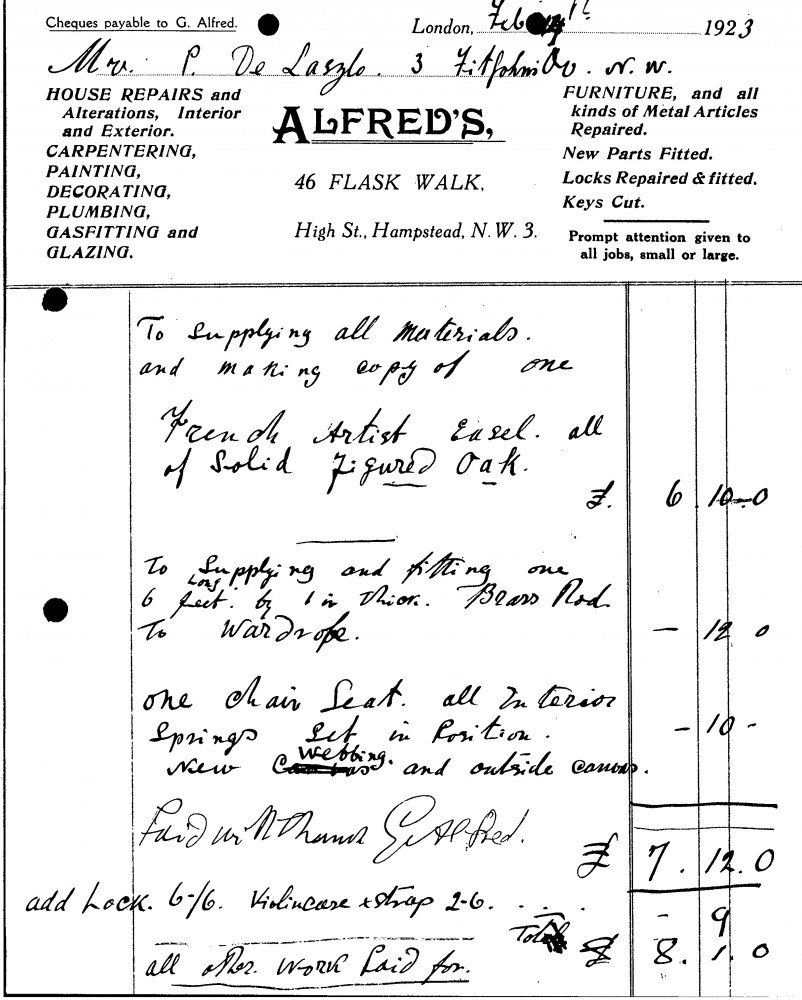 Cheques payable to G. Alfred.
London, Feb 1923
Mr. P. De Laszlo. 3 Fitzjohn Av. N. W.
HOUSE REPAIRS and
Alterations, Interior
and Exterior.
CARPENTERING,
PAINTING,
DECORATING,
PLUMBING,
GASFITTING and
GLAZING.
ALFRED'S,
46 FLASK WALK,
High St., Hampstead, N.W. 3.
FURNITURE, and all
kinds of Metal Articles
Repaired.
New Parts Fitted.
Locks Repaired & fitted.
Keys Cut.
Prompt attention given to
all jobs, small or large.
To Supplying all Materials.
and making copy of one
French Artist Easel. all
of Solid Figured Oak.
£. 6 10-0
To Supplying and fitting one
6 feet Long. by 1 in thick. Brass Rod
To Wardrope. — 12 0
one Chair Seat. all Interior
Springs Set in Position. - 10 -
New Webbing. and outside canvas.
Paid with Thanks G. Alfred.
£ 7. 12. 0
add Lock. 6-/6. Violincase & strap 2-6. . . . - 9
Total £ 8. 1. 0
all other work Paid for.